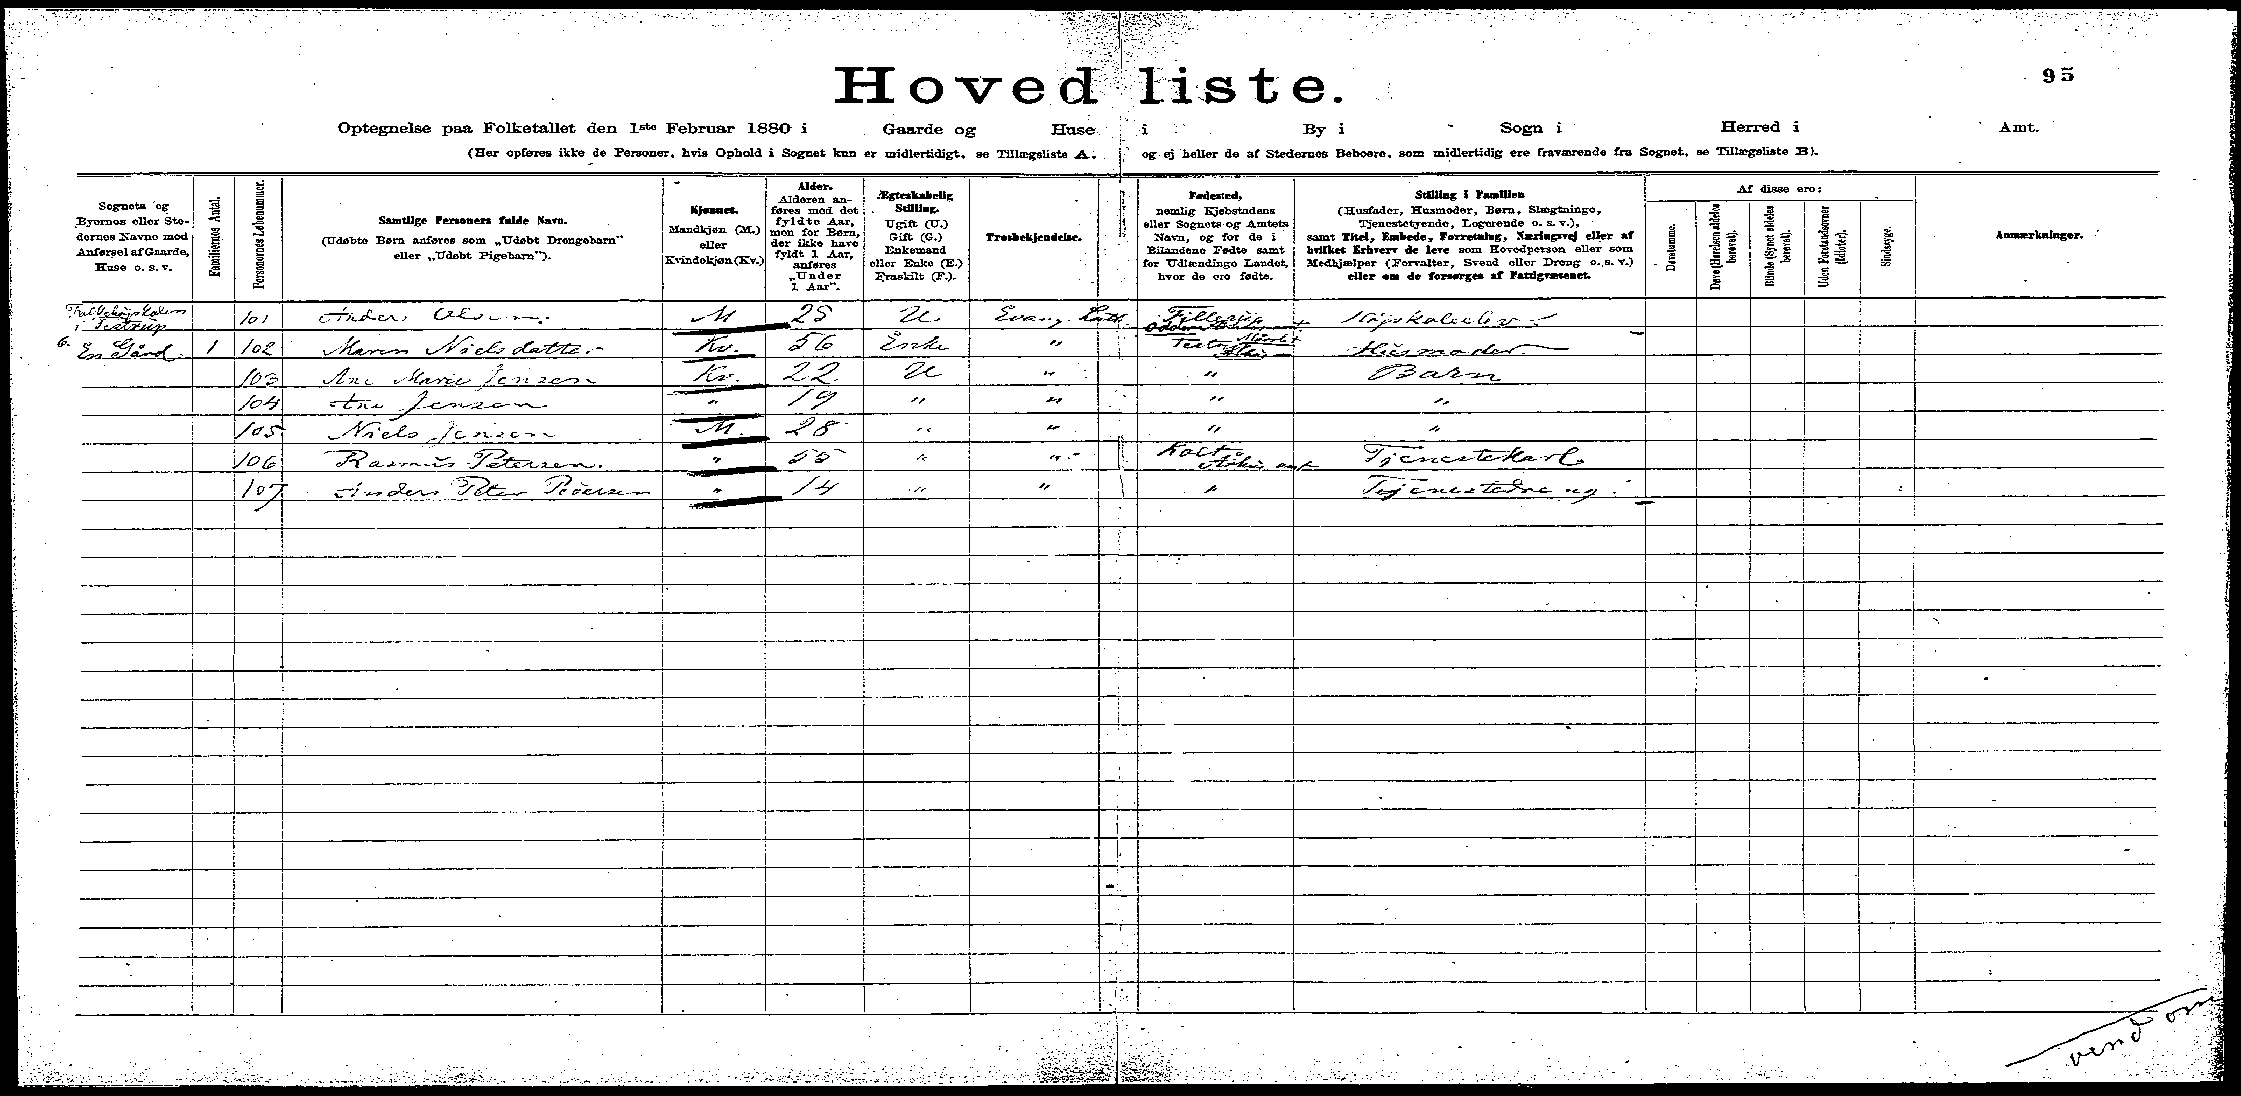 Hovedliste.
95
Optegnelse paa Folketallet den 1ste Februar 1880 i Gaarde og Huse i By i Sogn i Herred i Amt.
(Her opføres ikke de Personer, hvis Ophold i Sognet kun er midlertidigt, se Tillægsliste A. og ej heller de af Stedernes Beboere, som midlertidig ere fraværende fra Sognet, se Tillægsliste B).
Sognets og
Byernes eller Ste-
dernes Navne med
Anførsel af Gaarde,
Huse o. s. v.
Familiernes Antal.
Personernes Løbenummer.
Samtlige Personers fulde Navn.
(Udøbte Børn anføres som „Udøbt Drengebarn"
eller „Udøbt Pigebarn").
Kjønnet.
Mandkjøn (M.)
eller
Kvindekjøn (Kv.)
Alder.
Alderen an-
føres med det
fyldte Aar,
men for Børn,
der ikke have
fyldt 1 Aar,
anføres
„Under
1 Aar".
Ægteskabelig
Stilling.
Ugift (U.)
Gift (G.)
Enkemand
eller Enke (E.)
Fraskilt (F.).
Trosbekjendelse.
Fødested,
nemlig Kjøbstadens
eller Sognets og Amtets
Navn, og for de i
Bilandene Fødte samt
for Udlændinge Landet,
hvor de ere fødte.
Stilling i Familien
(Husfader, Husmoder, Børn, Slægtninge,
Tjenestetyende, Logerende o. s. v.),
samt Titel, Embede, Forretning, Næringsvej eller af
hvilket Erhverv de leve som Hovedperson eller som
Medhjælper (Forvalter, Svend eller Dreng o. s. v.)
eller om de forsørges af Fattigvæsenet.
Af disse ere:
Døvstumme.
Døve (Hørelsen aldeles
berøvet).
Blinde (Synet aldeles
berøvet).
Uden Forstandsevner
(Idioter).
Sindssyge.
Anmærkninger.
Folkehøjskolen
i Testrup
101 Anders Olsen. M 25 U. Evang. Luth. Højskoleelev
6. En Gård. 1 102 Maren Nielsdatter Kv. 56 Enke " Husmoder
103 Ane Marie Jensen Kv. 22 U " " Barn
104 Ane Jensen " 19 " " " "
105 Niels Jensen M. 28 " " " "
106 Rasmus Petersen. " 55 " " Kolt Tjenestekarl
107 Anders Peter Pedersen " 14 " " " Tjenestedreng.
vend om